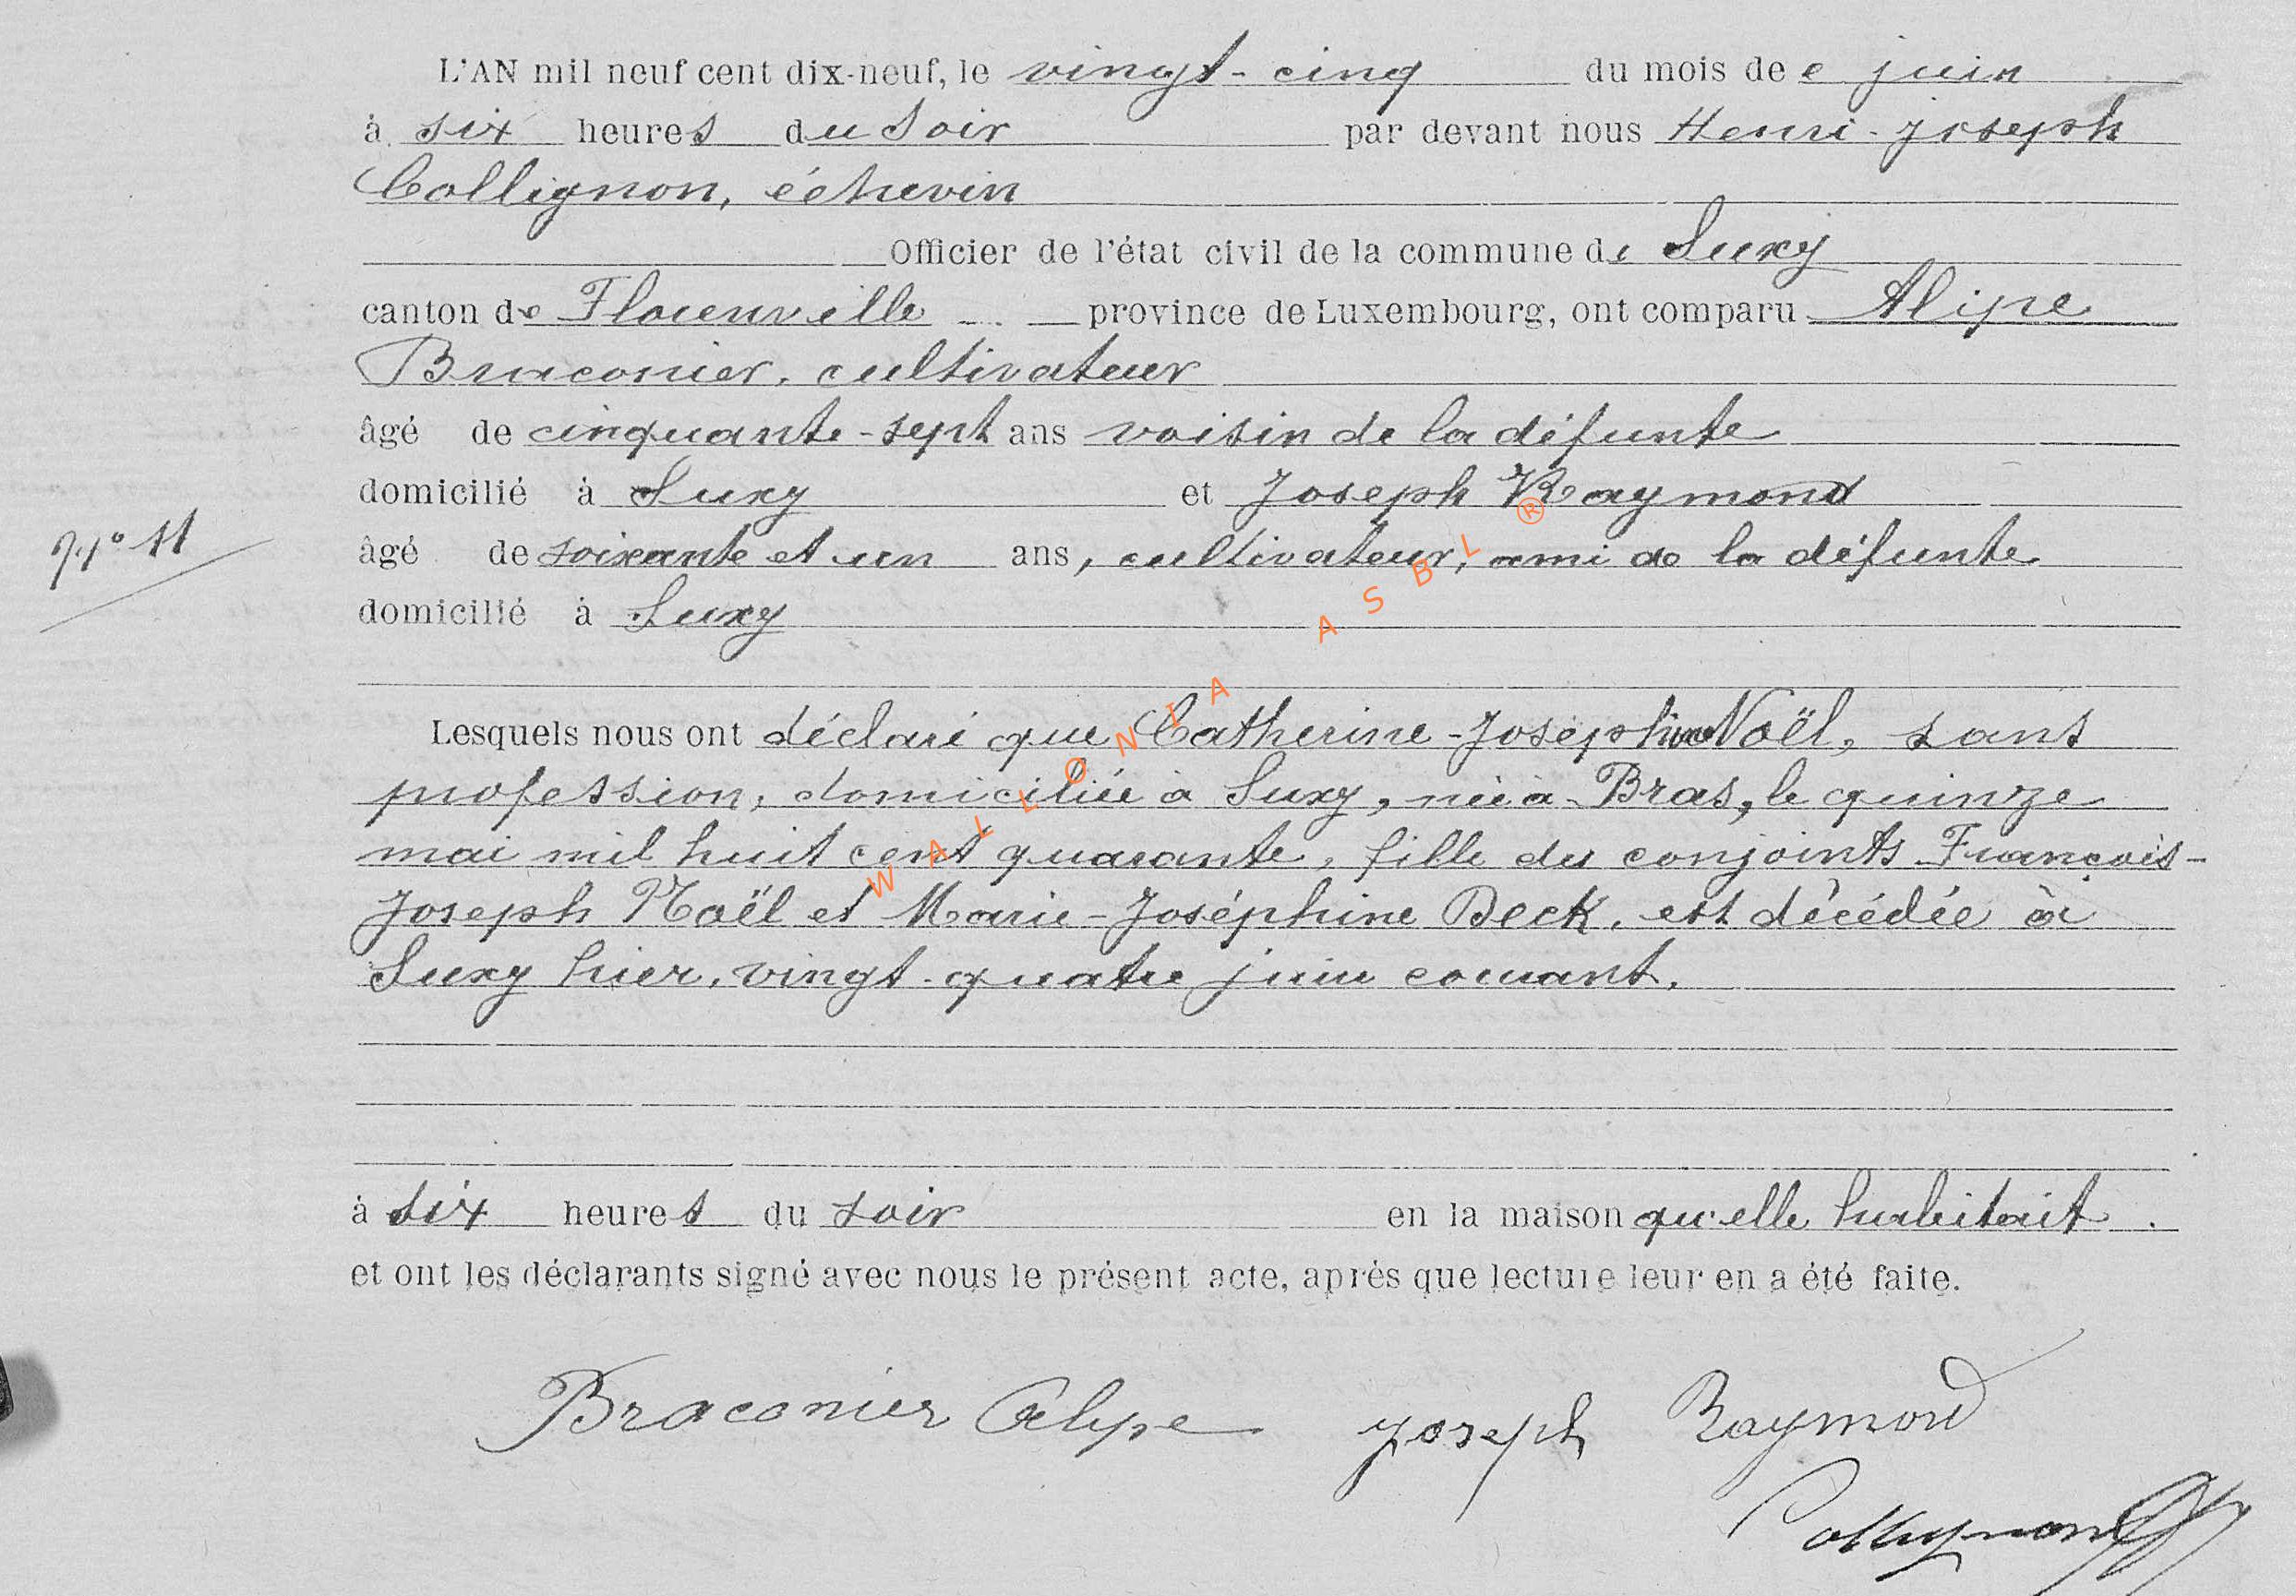 L'AN mil neuf cent dix-neuf, le vingt-cinq du mois de juin
à six heures du soir par devant nous Henri-Joseph
Collignon, échevin
Officier de l'état civil de la commune de Suxy
canton de Florenville province de Luxembourg, ont comparu Alipe
Braconier, cultivateur
âgé de cinquante-sept ans voisin de la défunte
domicilié à Suxy et Joseph Raymond
N° 11
âgé de soixante et un ans, cultivateur, ami de la défunte
domicilié à Suxy
Lesquels nous ont déclaré que Catherine-Joséphine Noël, sans
profession, domiciliée à Suxy, née à Bras, le quinze
mai mil huit cent quarante, fille des conjoints François-
Joseph Noël et Marie-Joséphine Beck, est décédée à
Suxy hier, vingt-quatre juin courant.
à six heures du soir en la maison qu'elle habitait.
et ont les déclarants signé avec nous le présent acte, après que lecture leur en a été faite.
Braconier Alype Joseph Raymond
Collignon
WALLONIA ASBL ®